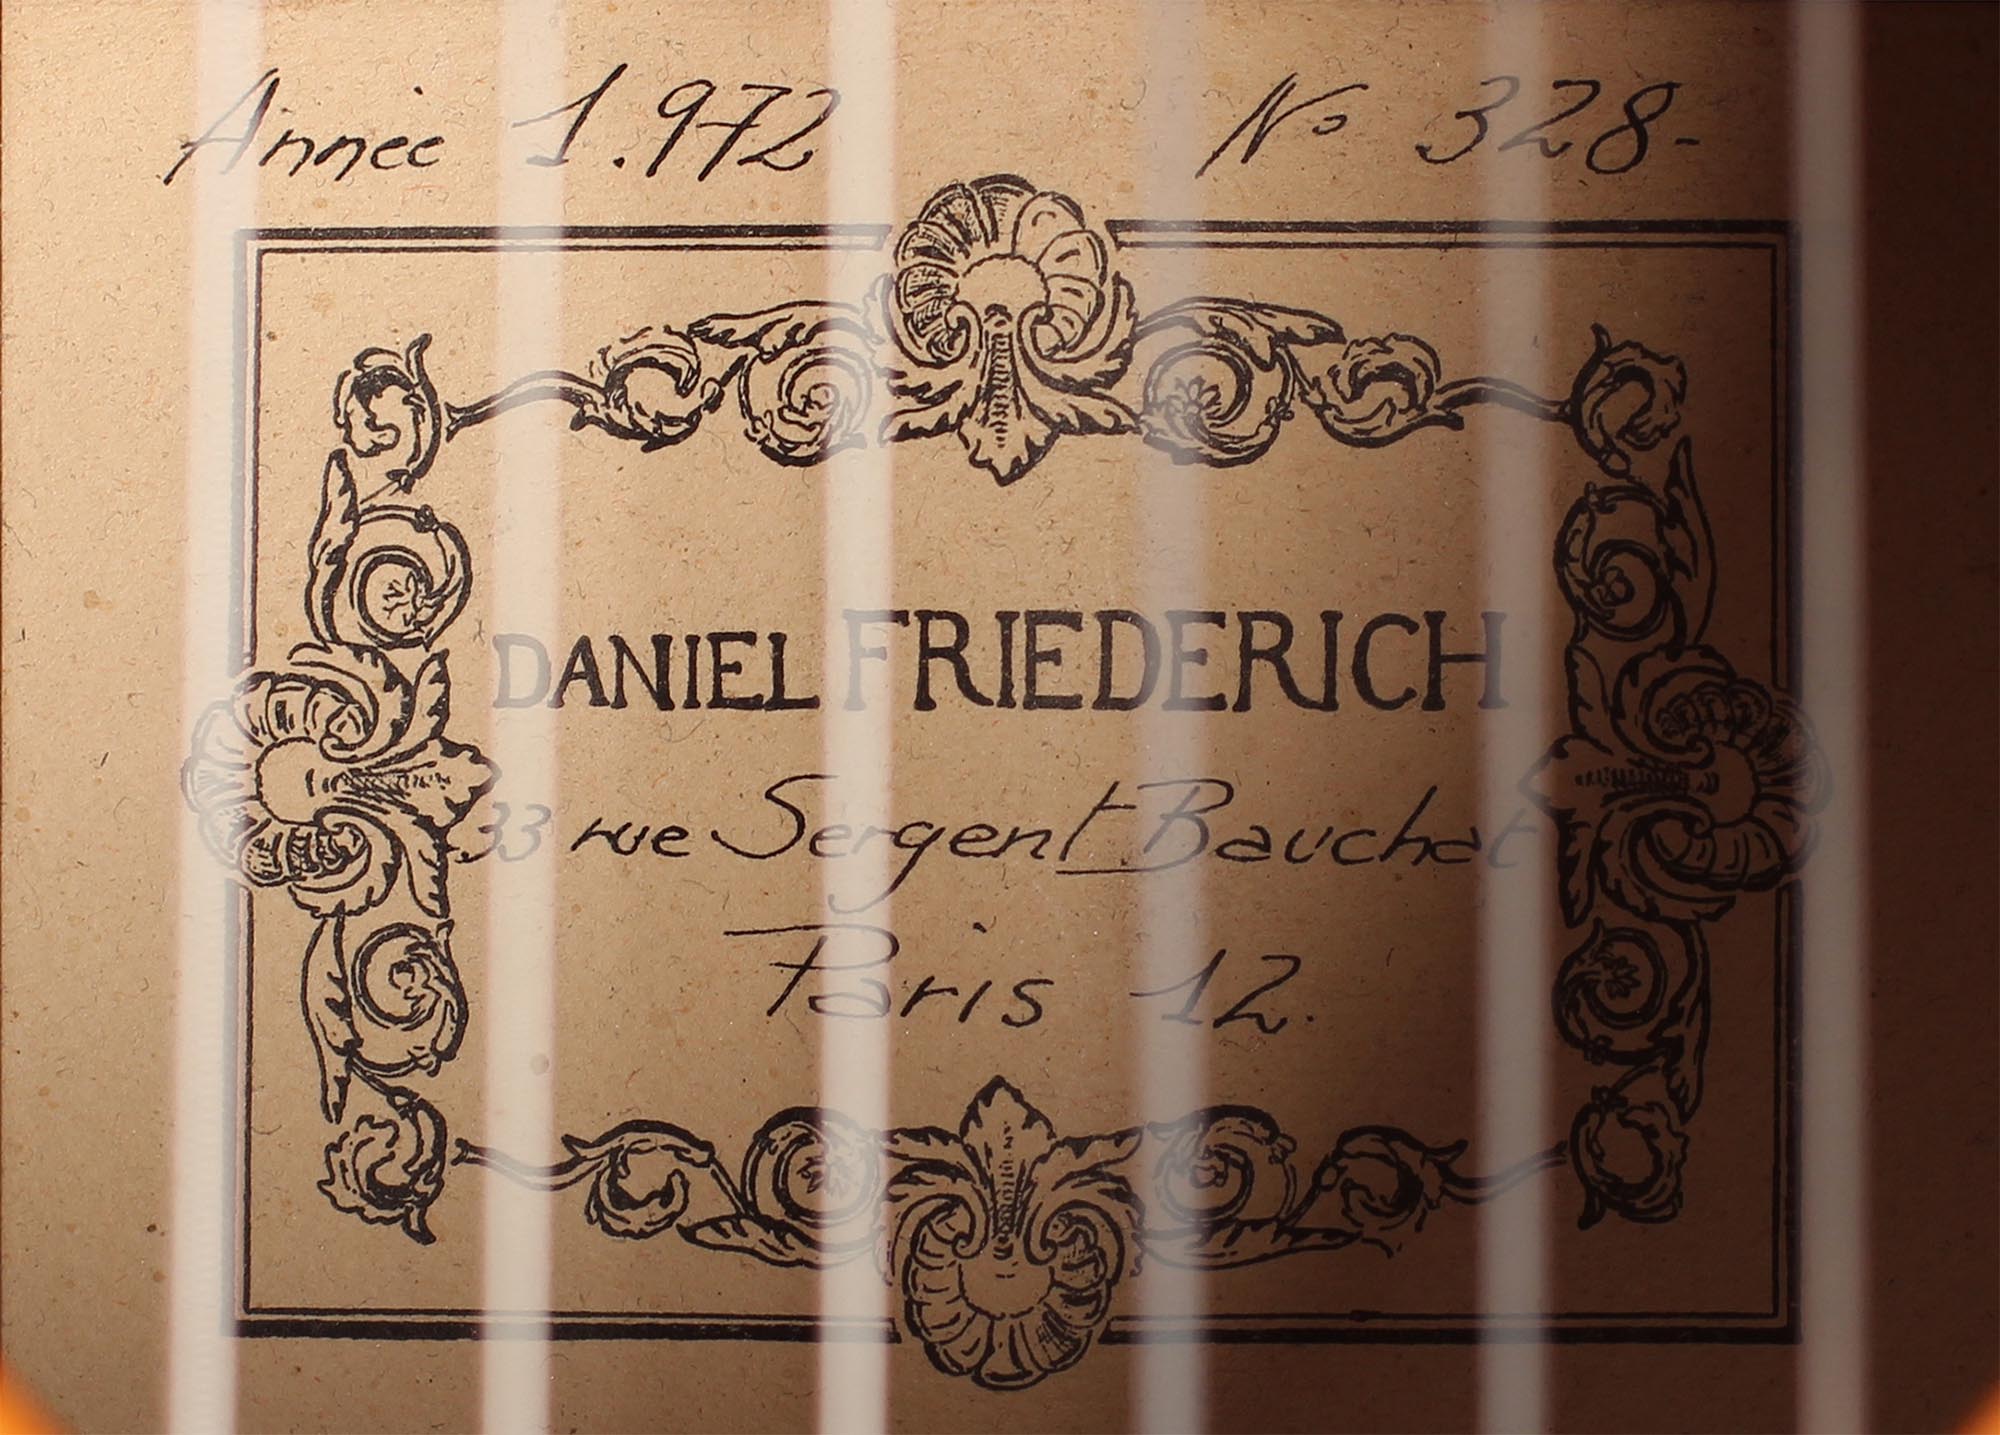 Année 1.972 No 328-
DANIEL FRIEDERICH
33 rue Sergent Bauchat
Paris 12.